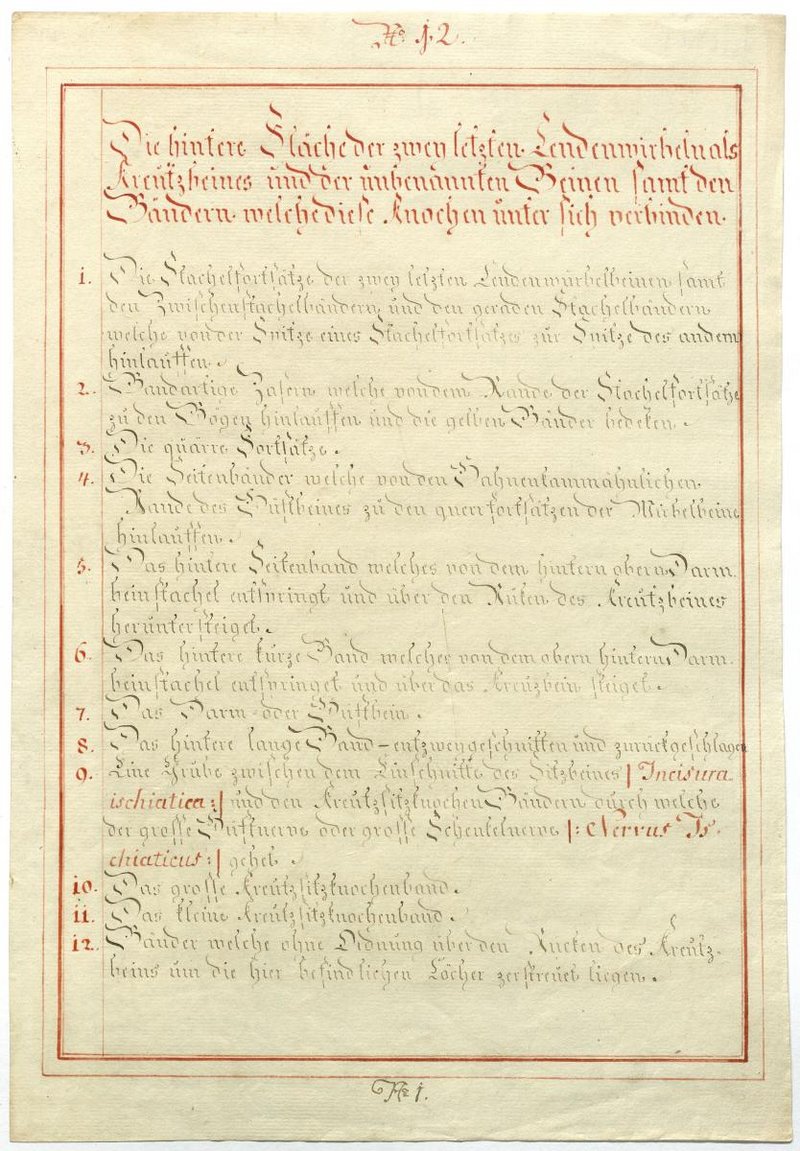 No. 12.
Die hintere Fläche der zwey letzten Lendenwirbeln als
Kreutzbeines und der unbenannten Beinen samt den
Bändern welche diese Knochen unter sich verbinden.
1. Die Stachelfortsätze der zwey letzten Lendenwürbelbeinen samt
den Zwischenstachelbändern und den geraden Stachelbändern
welche von der Spitze eines Stachelfortsatzes zur Spitze des andern
hinlauffen.
2. Bandartige Fasern welche von dem Rande der Stachelfortsätze
zu den Bögen hinlauffen und die gelben Bänder bedeken.
3. Die quärre Fortsätze.
4. Die Seitenbänder welche von den Hahnenkammähnlichen
Rande des Hüftbeines zu den querrfortsätzen der Würbelbeine
hinlauffen.
5. Das hintere Seitenband welches von dem hintern obern Darm-
beinstachel entspringt und über den Rüken des Kreutzbeines
herunter steiget.
6. Das hintere kurze Band welches von dem obern hintern Darm-
beinstachel entspringet und über das Kreuzbein steiget.
7. Das Darm- oder Hüftbein.
8. Das hintere lange Band – entzweygeschnitten und zurückgeschlagen
9. Eine Grube zwischen dem Einschnitte des Sitzbeines |: Incisura
ischiatica :| und den Kreutzsitzknochen Bändern durch welche
der grosse Hüftnerve oder grosse Schenkelnerve |: Nervus Is-
chiaticus :| gehet.
10. Das grosse Kreutzsitzknochenband.
11. Das kleine Kreutzsitzknochenband.
12. Bänder welche ohne Ordnung über den Rucken des Kreutz-
beins um die hier befindlichen Löcher zerstreuet liegen.
No. 1.